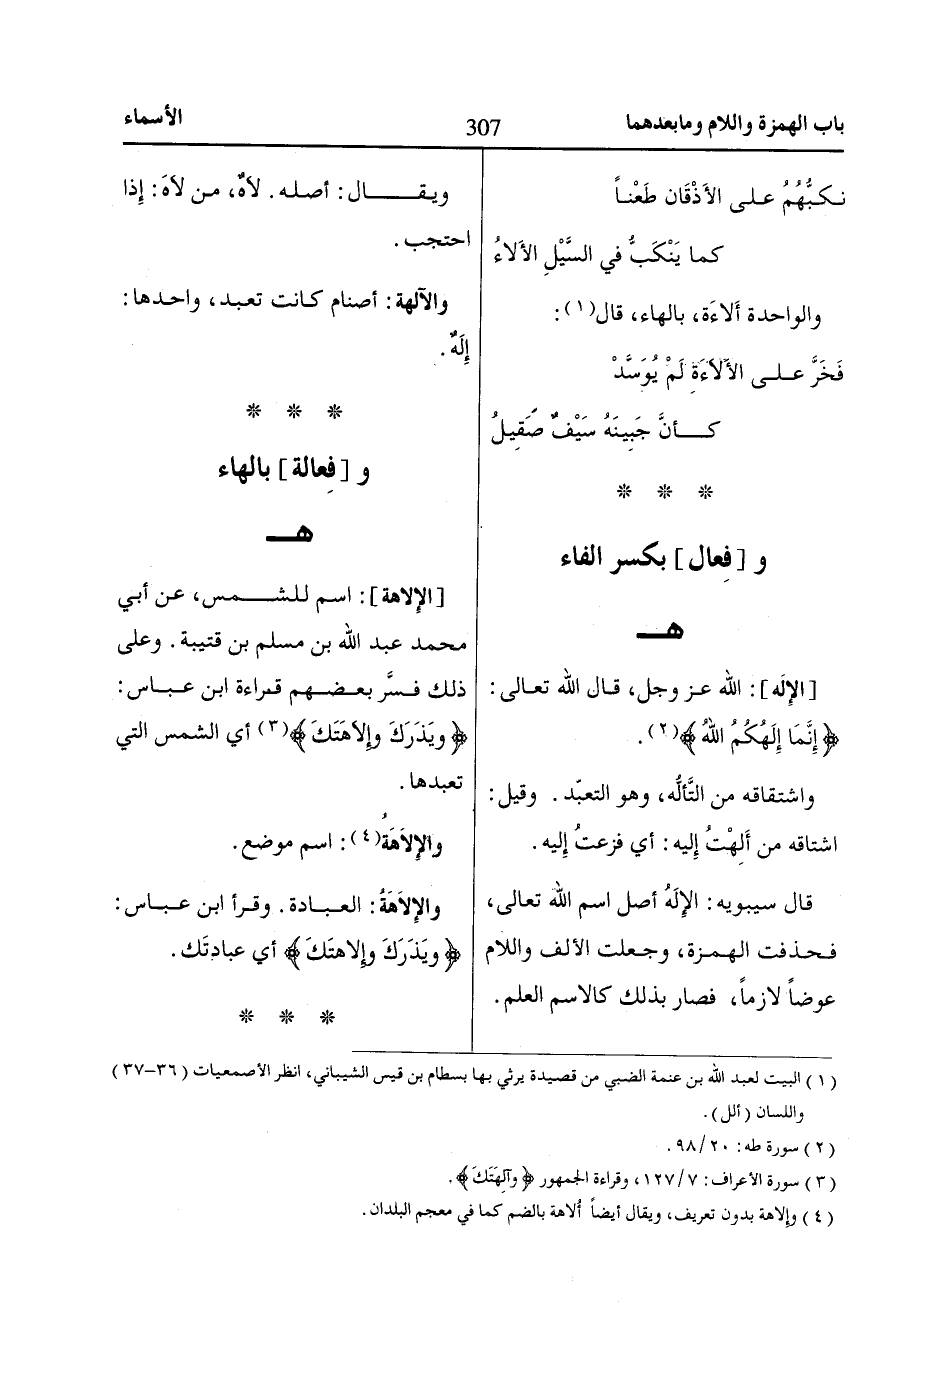 باب الهمزة واللام ومابعدهما
307
الأسماء
نكبُّهُمُ على الأذْقان طَعْناً
كما يَنْكَبُّ في السَّيْلِ الألاءُ
والواحدة ألاءَة، بالهاء، قال(١):
فَخَرَّ على الألاءَةِ لَمْ يُوَسَّدْ
كأنَّ جَبِينَهُ سَيْفٌ صَقِيلُ
* * *
و [فِعال] بكسر الفاء
هـ
[الإلَه]: الله عز وجل، قال الله تعالى:
﴿إِنَّمَا إِلَهُكُمُ اللهُ﴾(٢).
واشتقاقه من التَّألُّه، وهو التعبّد. وقيل:
اشتاقه من أَلِهْتُ إليه: أي فزعتُ إليه.
قال سيبويه: الإلَهُ أصل اسم الله تعالى،
فحذفت الهمزة، وجعلت الألف واللام
عوضاً لازماً، فصار بذلك كالاسم العلم.
ويقال: أصله. لاهٌ، من لاهَ: إذا
احتجب.
والآلهة: أصنام كانت تعبد، واحدها:
إلَهٌ.
* * *
و [فِعالة] بالهاء
هـ
[الإلاهة]: اسم للشمس، عن أبي
محمد عبد الله بن مسلم بن قتيبة. وعلى
ذلك فسَّر بعضهم قراءة ابن عباس:
﴿ويَذَرَكَ وإلاهَتَكَ﴾(٣) أي الشمس التي
تعبدها.
والإلاَهَةُ(٤): اسم موضع.
والإلاَهَةُ: العبادة. وقرأ ابن عباس:
﴿ويَذَرَكَ وإلاهتَكَ﴾ أي عبادتَك.
* * *
(١) البيت لعبد الله بن عنمة الضبي من قصيدة يرثي بها بسطام بن قيس الشيباني، انظر الأصمعيات (٣٦-٣٧)
واللسان (ألل).
(٢) سورة طه: ٢٠/ ٩٨.
(٣) سورة الأعراف: ٧/ ١٢٧، وقراءة الجمهور ﴿وآلِهَتَكَ﴾.
(٤) وإلاهة بدون تعريف، ويقال أيضاً أُلاهة بالضم كما في معجم البلدان.